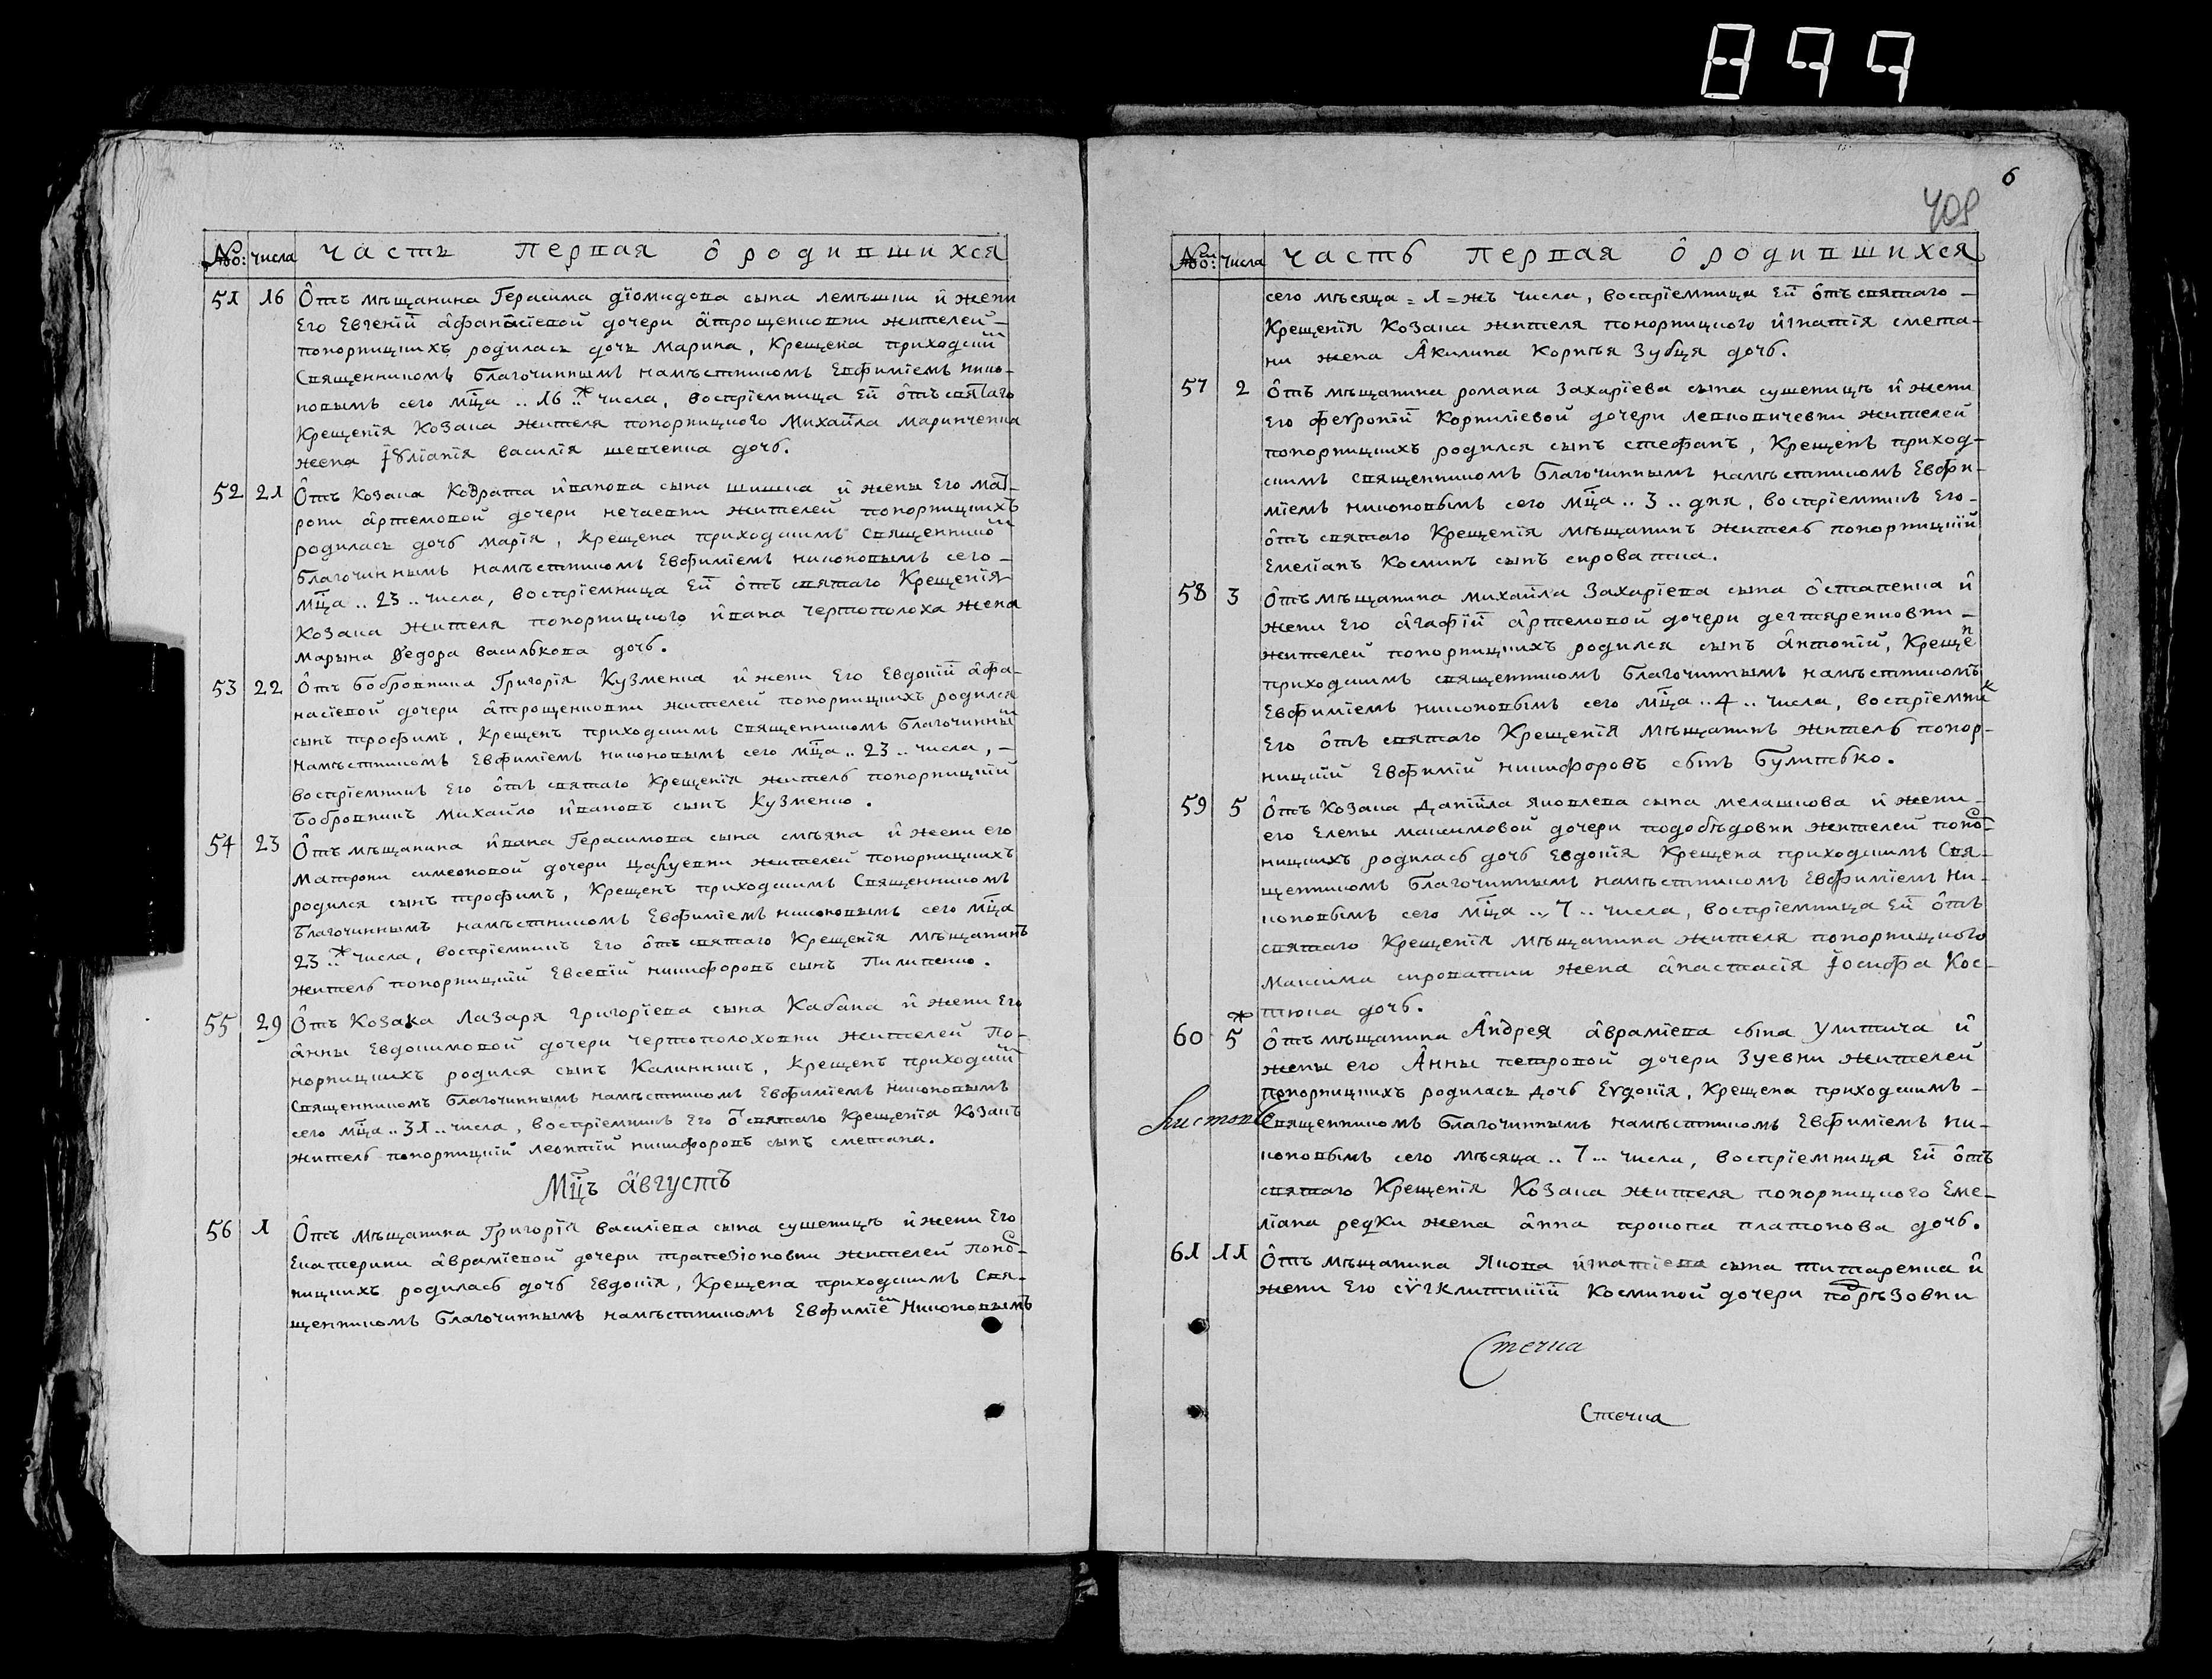 899
№: числа часть первая о родившихся
51 16 Отъ мѣщанина Герасима діомидова сына лемѣшки и жени
Его Евгеніи афанасіевой дочери атрощенковни жителей
понорницкихъ родилась дочь Марина, Крещена приходским
Священникомъ благочиннымъ намѣстникомъ Евфиміемъ Нико-
новымъ сего мца .. 16 .. числа, воспріемница Ей отъ святаго
Крещенія Козака жителя понорницкого Михаила Маринченка
жена Іуліанія василія шевченка дочь.
52 21 Отъ Козака Кодрата иванова сына шишка и жены Его мат-
рони артемовой дочери нечаевни жителей понорницкихъ
родилась дочь марія, крещена приходскимъ Священником
благочиннымъ намѣстникомъ Евфиміемъ никоновымъ сего
мца .. 23 .. числа, воспріемница Ей отъ святаго Крещенія
Козака жителя понорницкого ивана чертополоха жена
марына федора василькова дочь.
53 22 Отъ бобровника Григорія Кузменка и жени Его Евдокіи афа-
насіевой дочери атрощенковни жителей понорницкихъ родился
сынъ трофимъ, Крещенъ приходскимъ Священникомъ благочинным
намѣстникомъ Евфиміемъ никоновымъ сего мца .. 23 .. числа,
воспріемникъ Его отъ святаго Крещенія житель понорницкій
бобровникъ михайло ивановъ сынъ Кузменко.
54 23 Отъ мѣщанина ивана Герасимова сына смѣяна и жени его
матрони симеоновой дочери жителей понорницкихъ
родился сынъ трофимъ, Крещенъ приходскимъ Священникомъ
благочиннымъ намѣстникомъ Евфиміемъ никоновымъ сего мца
23 .. числа, воспріемникъ Его отъ святаго Крещенія мѣщанинъ
житель понорницкій Евсевій никифоровъ сынъ Пилипенко.
55 29 Отъ Козака Лазаря григоріева сына Кабана и жени Его
анны Евдокимовой дочери чертополоховни жителей По-
норницкихъ родился сынъ Калинникъ, Крещенъ приходским
Священникомъ благочиннымъ намѣстникомъ Евфиміемъ никоновымъ
сего мца .. 31 .. числа, воспріемникъ Его от святаго Крещенія Козакъ
житель понорницкій леонтій никифоровъ сынъ сметана.
Мцъ августъ
56 1 Отъ мѣщанина Григорія василіева сына сушеницѣ и жени Его
Екатерини авраміевой дочери трапезіоновни жителей понор-
ницкихъ родилась дочь Евдокія, Крещена приходскимъ Свя-
щенникомъ благочиннымъ намѣстникомъ Евфиміем Никоновымъ
6
409
№: числа часть первая о родившихся
сего мѣсяца = 1 = жъ числа, воспріемница Ей отъ святаго
Крещенія Козака жителя понорницкого игнатія смета-
ни жена Акилина Корнѣя Зубця дочь.
57 2 отъ мѣщанина романа Захаріева сына сушеницѣ и жени
Его феѵроніи Корниліевой дочери левковичевни жителей
понорницкихъ родился сынъ стефанъ, Крещенъ приход-
скимъ священникомъ благочиннымъ намѣстникомъ Евфи-
міемъ никоновымъ сего мца .. 3 .. дня, воспріемникъ Его
отъ святаго Крещенія мѣщанинъ житель понорницкій
Емеліанъ Косминъ сынъ сироватка.
58 3 Отъ мѣщанина михаила Захаріева сына остапенка и
жени Его агафіи артемовой дочери дегтяренковни
жителей понорницкихъ родился сынъ антоній, Крещен
приходскимъ священникомъ благочиннымъ намѣстникомъ
Евфиміемъ никоновымъ сего мца .. 4 .. числа, воспріемник
Его отъ святаго Крещенія мѣщанинъ житель понор-
ницкій Евфимій никифоровъ сынъ Булитько.
59 5 Отъ Козака Даніила яковлева сына мелашкова и жени
его Елены максимовой дочери подобѣдовни жителей понор-
ницкихъ родилась дочь Евдокія Крещена приходскимъ Свя-
щенникомъ благочиннымъ намѣстникомъ Евфиміемъ Ни-
коновымъ сего мца .. 7 .. числа, воспріемница Ей отъ
святаго Крещенія мѣщанина жителя понорницкого
максима сироватки жена анастасія Іосифа Кос-
тюка дочь.
60 5 отъ мѣщанина Андрея авраміева сына Улитича и
жены его Анны петровой дочери Зуевни жителей
понорницкихъ родилась дочь Еѵдокія, Крещена приходскимъ
Священникомъ благочиннымъ намѣстникомъ Евфиміемъ ни-
коновымъ сего мѣсяца .. 7 .. числа, воспріемница Ей отъ
святаго Крещенія Козака жителя понорницкого Еме-
ліана редки жена анна прокопа платонова дочь.
61 11 Отъ мѣщанина Якова игнатіева сына титаренка и
жени Его сѵгклитикіи Косминой дочери порѣзовни
Стечка
Стечка